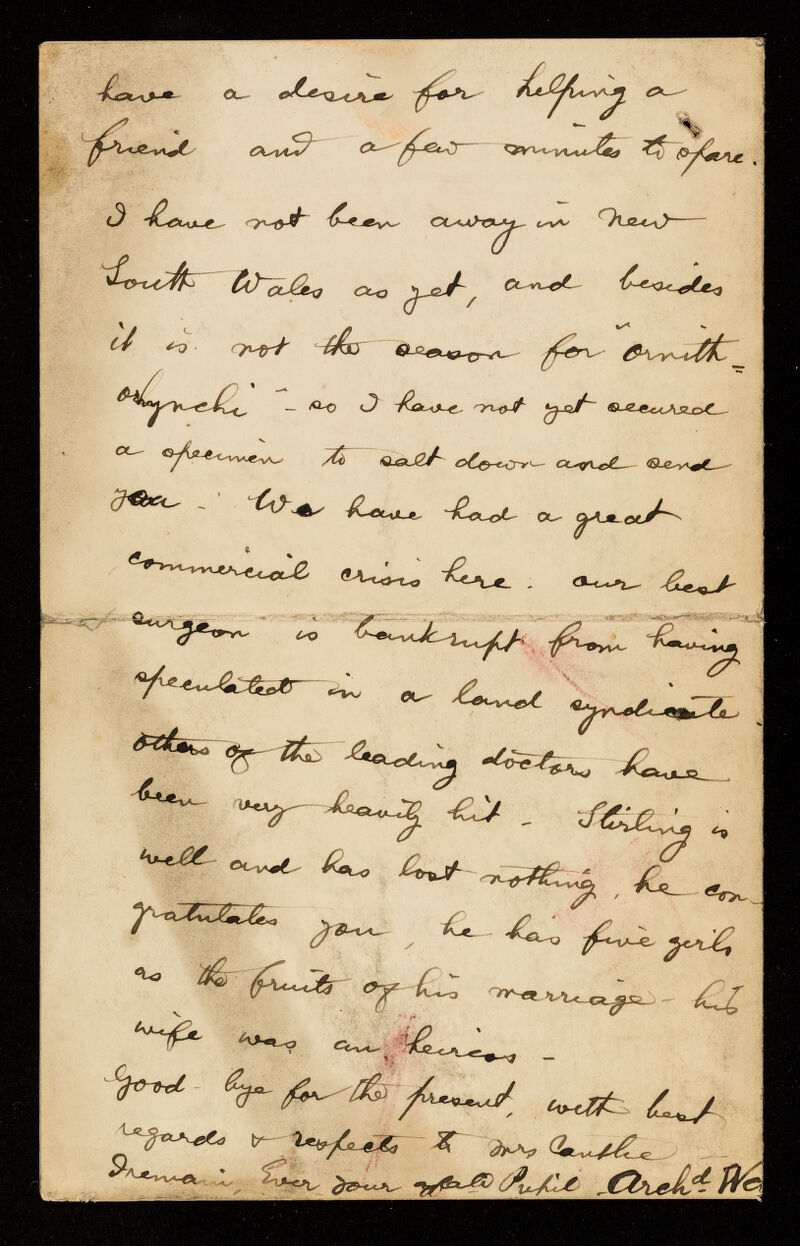 have a desire for helping a
friend and a few minutes to spare.
I have not been away in New
South Wales as yet, and besides
it is not the season for "ornith=
orhynchi" - so I have not yet secured
a specimen to salt down and send
you - We have had a great
commercial crisis here. our best
surgeon is bankrupt from having
speculated in a land syndicate.
others of the leading doctors have
been very heavily hit - Stirling is
well and has lost nothing, he con-
gratulates you, he has five girls
as the fruits of his marriage - his
wife was an heiress -
Good-bye for the present, with best
regards & respects to Mrs Cantlie -
I remain, Ever your Pupil Archd